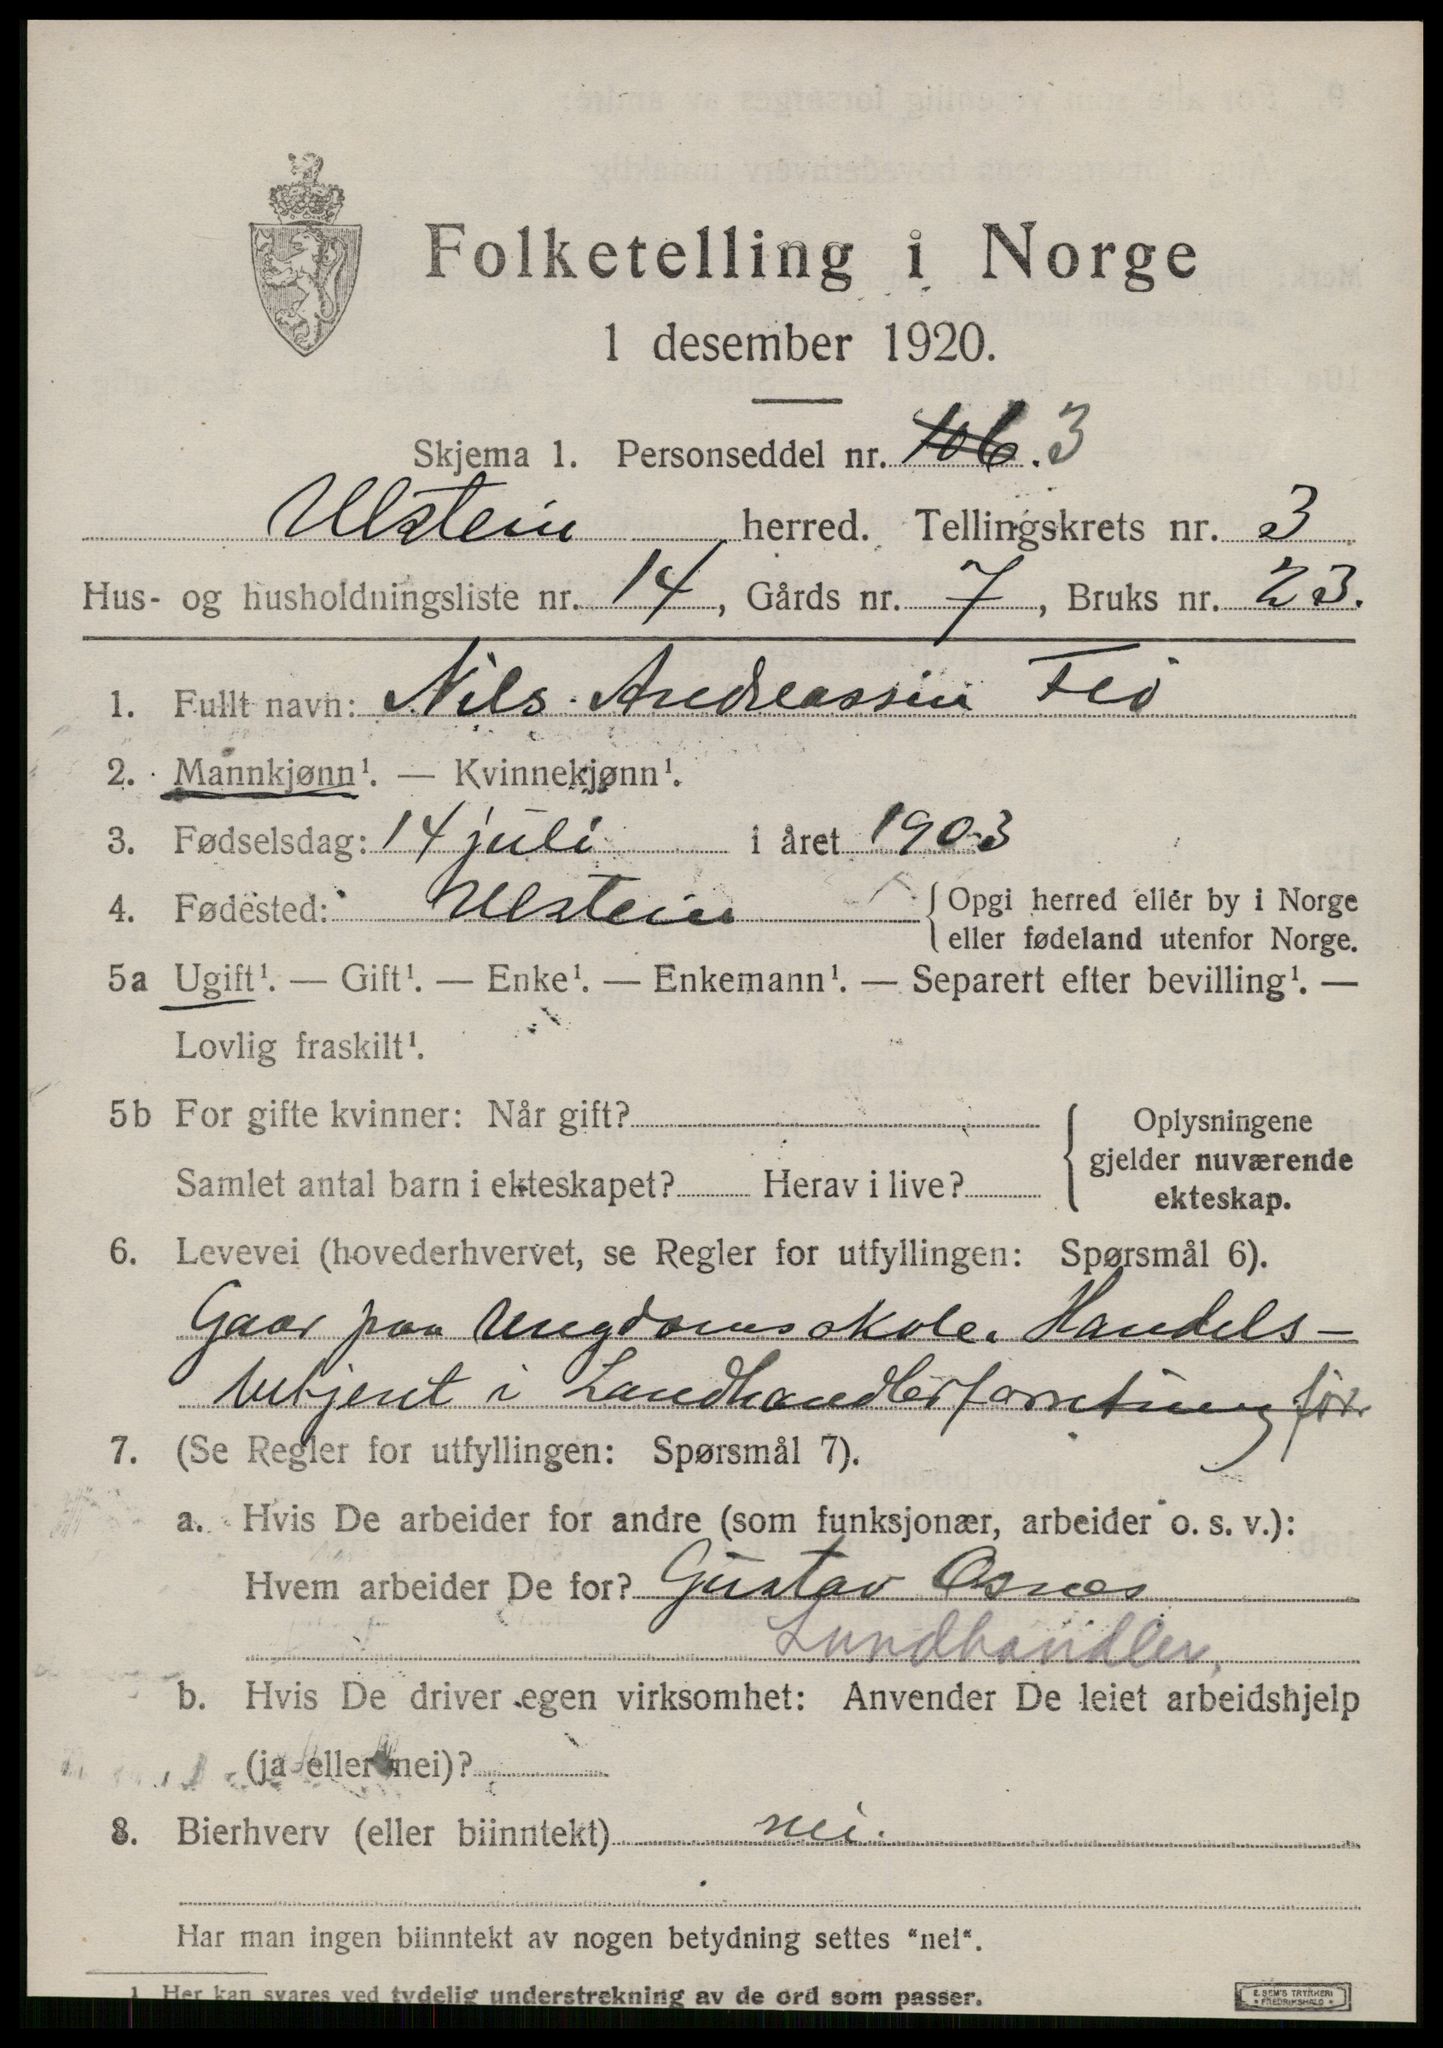 Folketelling i Norge
1 desember 1920.
Skjema 1. Personseddel nr. 106. 3
Ulstein herred. Tellingskrets nr. 3
Hus- og husholdningsliste nr. 14, Gårds nr. 7, Bruks nr. 23.
1. Fullt navn: Nils Andreassen Flø
2. Mannkjønn¹. — Kvinnekjønn¹.
3. Fødselsdag: 14 juli i året 1903
4. Fødested: Ulstein { Opgi herred eller by i Norge
eller fødeland utenfor Norge.
5a Ugift¹. — Gift¹. — Enke¹. — Enkemann¹. — Separert efter bevilling¹. —
Lovlig fraskilt¹.
5b For gifte kvinner: Når gift?
Samlet antal barn i ekteskapet? Herav i live?
{ Oplysningene
gjelder nuværende
ekteskap.
6. Levevei (hovederhvervet, se Regler for utfyllingen: Spørsmål 6).
Gaar paa Ungdomsskole. Handels-
betjent i Landhandlerforretning før.
7. (Se Regler for utfyllingen: Spørsmål 7).
a. Hvis De arbeider for andre (som funksjonær, arbeider o. s. v.):
Hvem arbeider De for? Gustav Osnes
Landhandler,
b. Hvis De driver egen virksomhet: Anvender De leiet arbeidshjelp
(ja eller nei)?
8. Bierhverv (eller biinntekt) nei.
Har man ingen biinntekt av nogen betydning settes "nei".
1 Her kan svares ved tydelig understrekning av de ord som passer.
E. SEM'S TRYKKERI
FREDRIKSHALD